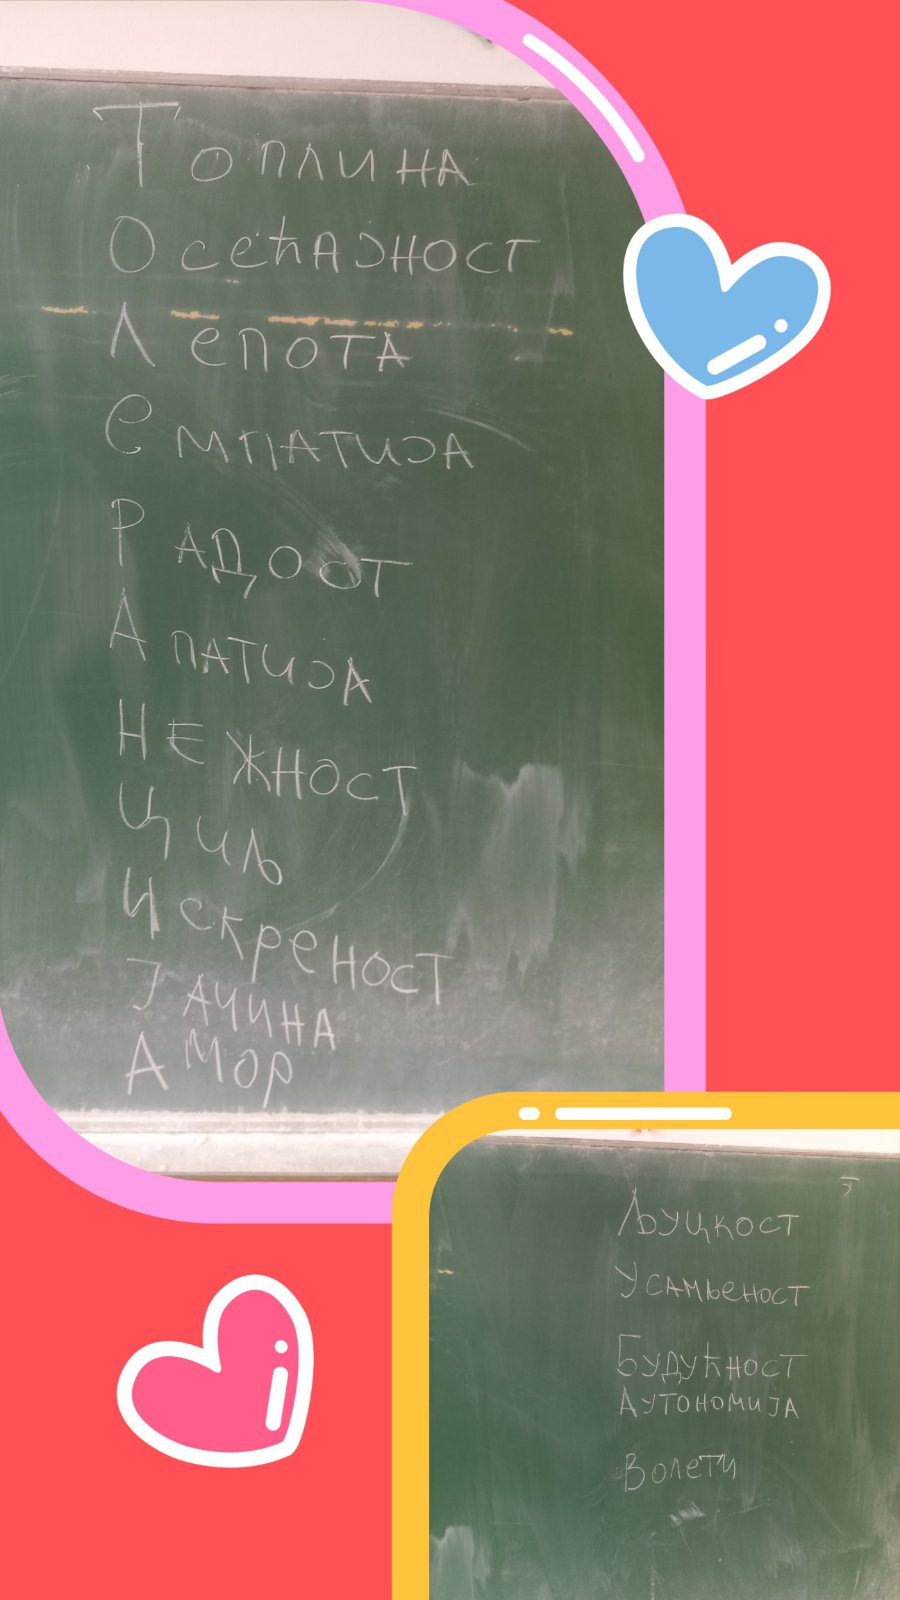 Топлина
Осећајност
Лепота
Емпатија
Радост
Апатија
Нежност
Циљ
Искреност
Јачина
Амор
Љуцкост
Усамљеност
Будућност
Аутономија
Волети